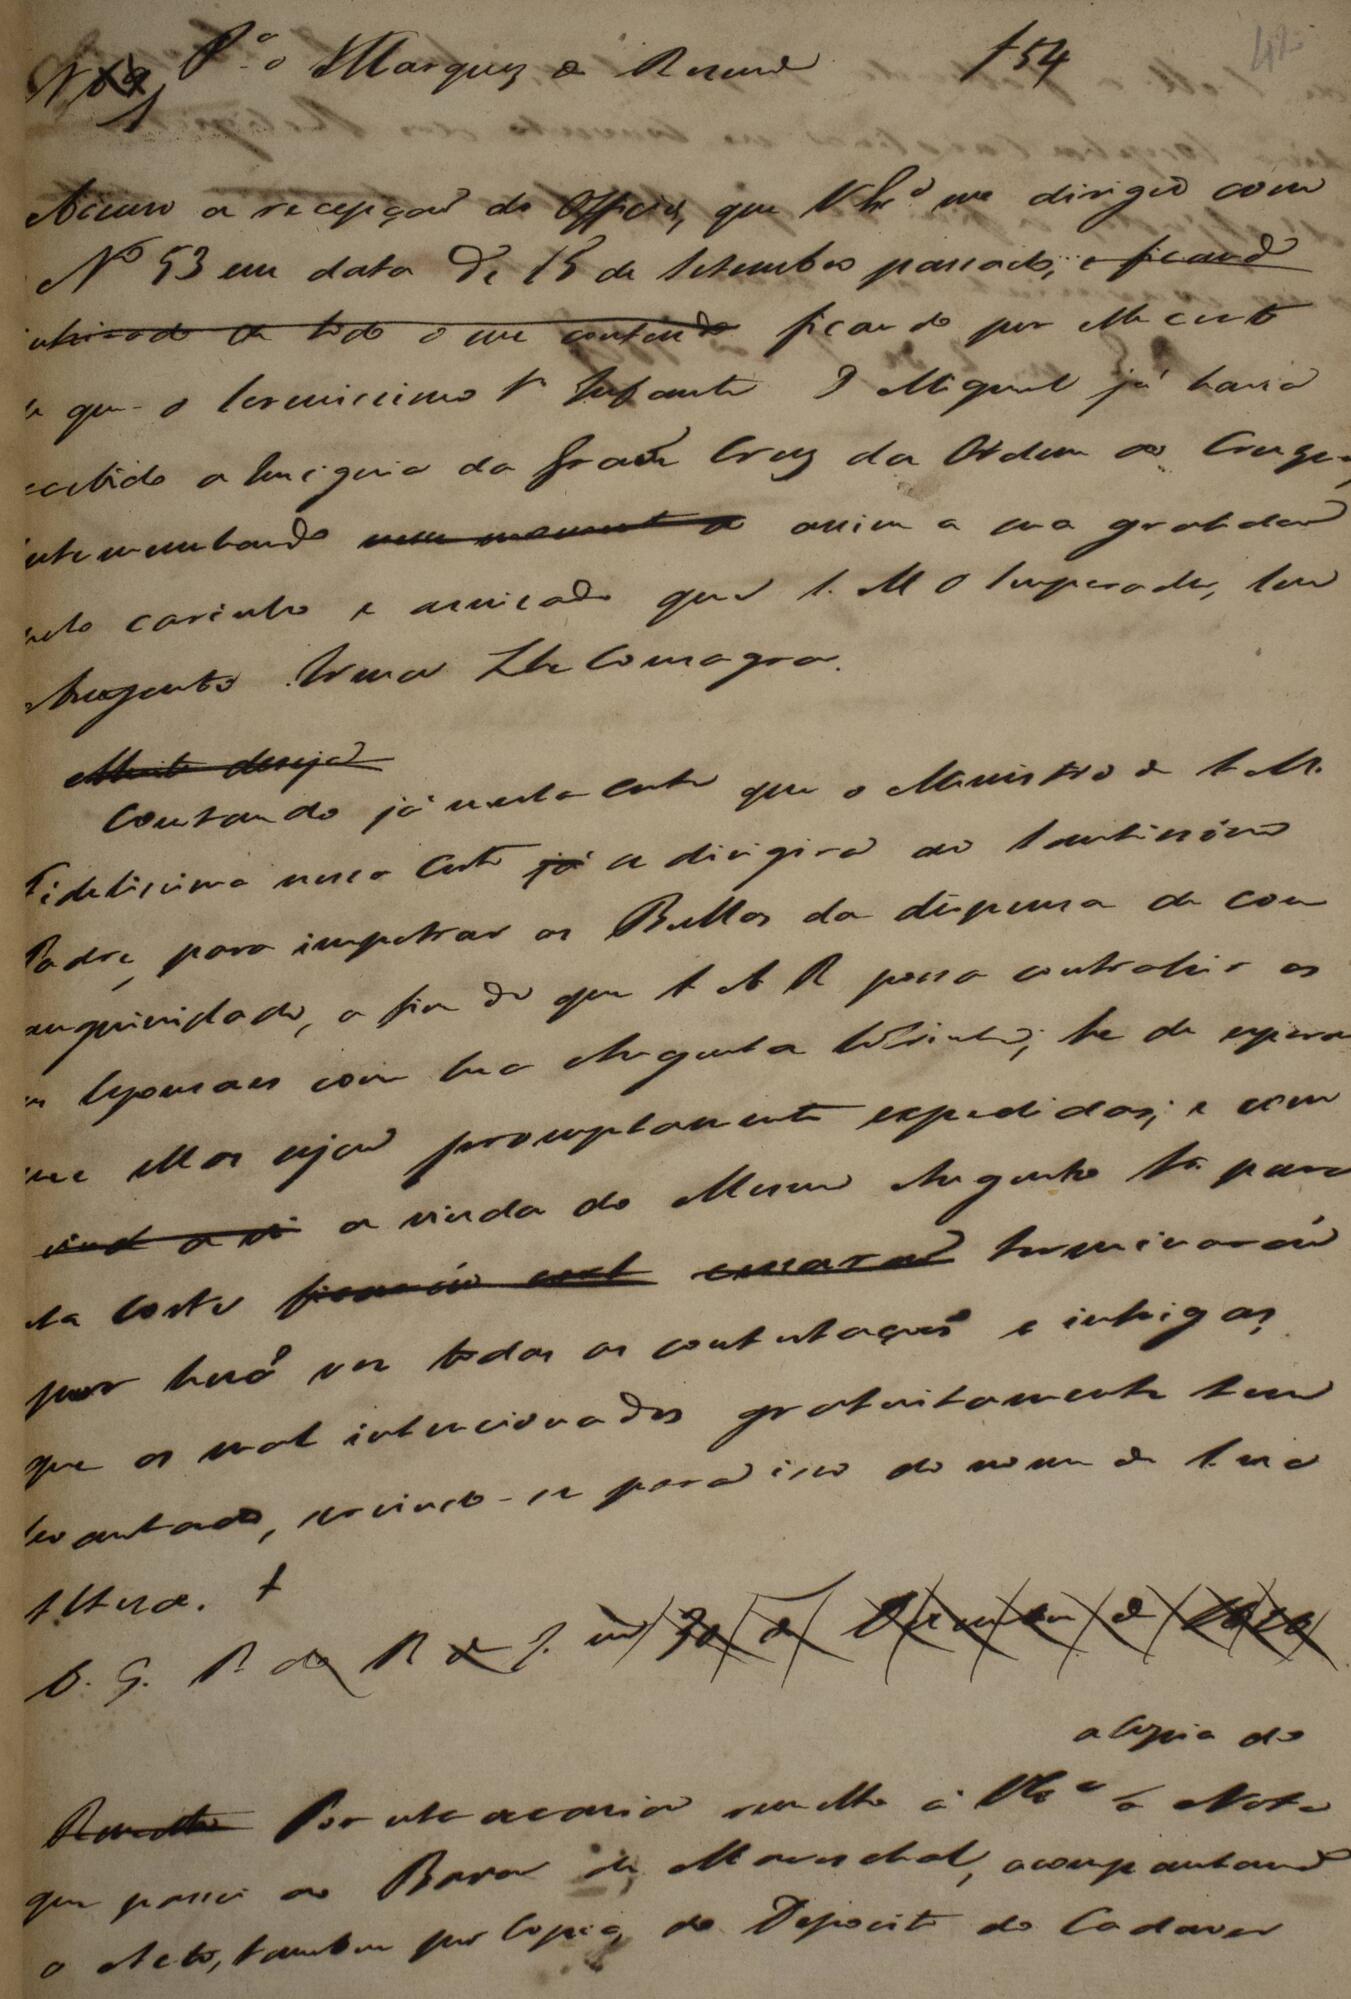 P.a o Marquez de Resende 154 42
N 1
Accuso a recepção do Officio, que V Ex.ª me dirigio com
Nº 53 em data de 15 de Setembro passado, e ficando
inteirado de todo o seu contendo ficando por elle certo
de que o Serenissimo Sr Infante D Miguel já havia
recebido a Insignia da Grão Cruz da Ordem do Cruzeiro,
testemunhando assim a sua gratidão
pelo carinho e amizade que S. M O Imperador, Seu
Augusto Irmão Lhe Consagra.
Muito deseja
Constando já nesta Corte que o Ministro de S. M.
Fidelissima nessa Corte já se dirigira ao Santissimo
Padre, para impetrar as Bullas da dispensa de con
sanguinidade, a fim de que S A R possa contrahir os
seus Esponsaes com Sua Augusta Sobrinha; he de esperar
que ellas sejão promptamente expedidas; e com
a vinda do Mesmo Augusto Sr. para
esta Corte terminarão
por huã vez todas as contestações e intrigas,
que os mal intencionados gratuitamente tem
levantado, servindo-se para isso do nome de Sua
Alteza. +
D. G. P. do R de J. em 30 de Dezembro de 1826
a Copia da
Remetto Por esta occasião remetto á V Ex.ª a Nota
que passei ao Barão de Mareschal, acompanhando
o Acto, tambem por Copia, do Deposito do Cadaver